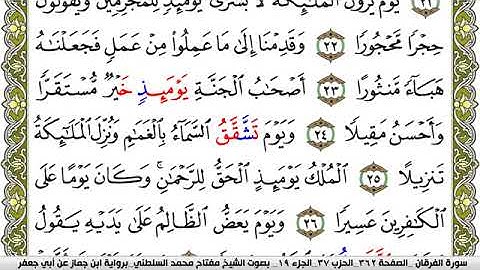 يَوْمَ يَرَوْنَ الْمَلَٰٓئِكَةَ لَا بُشْرَىٰ يَوْمَئِذٍ لِّلْمُجْرِمِينَ وَيَقُولُونَ
حِجْرًا مَّحْجُورًا ٢٢ وَقَدِمْنَا إِلَىٰ مَا عَمِلُوا مِنْ عَمَلٍ فَجَعَلْنَاهُ
هَبَآءً مَّنثُورًا ٢٣ أَصْحَابُ الْجَنَّةِ يَوْمَئِذٍ خَيْرٌ مُّسْتَقَرًّا
وَأَحْسَنُ مَقِيلًا ٢٤ وَيَوْمَ تَشَّقَّقُ السَّمَآءُ بِالْغَمَامِ وَنُزِّلَ الْمَلَٰٓئِكَةُ
تَنزِيلًا ٢٥ الْمُلْكُ يَوْمَئِذٍ الْحَقُّ لِلرَّحْمَٰنِ ۚ وَكَانَ يَوْمًا عَلَى
الْكَٰفِرِينَ عَسِيرًا ٢٦ وَيَوْمَ يَعَضُّ الظَّالِمُ عَلَىٰ يَدَيْهِ يَقُولُ
سورة الفرقان _ الصفحة ٣٦٢_ الحزب ٣٧_ الجزء ١٩_ بصوت الشيخ مفتاح محمد السلطني_ برواية ابن جماز عن أبي جعفر